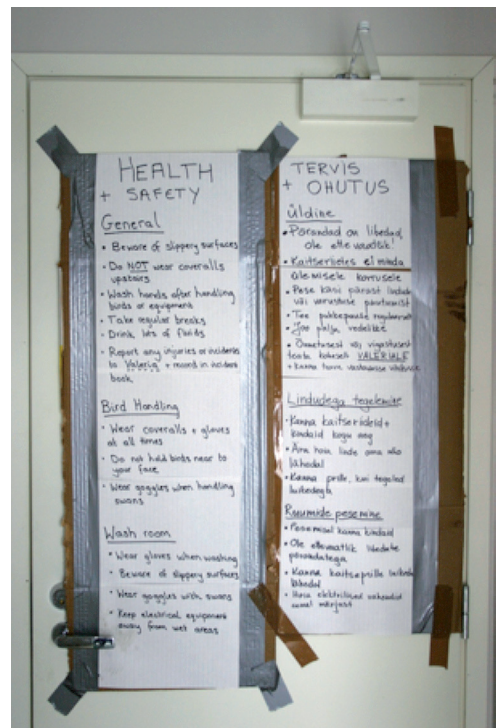 HEALTH
+ SAFETY
General
• Beware of slippery surfaces
• Do NOT wear coveralls
upstairs
• Wash hands after handling
birds or equipment
• Take regular breaks
• Drink lots of fluids
• Report any injuries or incidents
to Valeria + record in incident
book
Bird Handling
• Wear coveralls + gloves
at all times
• Do not hold birds near to
your face
• Wear goggles when handling
swans
Wash room
• Wear gloves when washing
• Beware of slippery surfaces
• Wear goggles with swans
• Keep electrical equipment
away from wet areas
TERVIS
+ OHUTUS
Üldine
• Põrandad on libedad,
ole ettevaatlik!
• Kaitseriietes ei minda
ülemisele korrusele
• Pese käsi pärast lindude
või varustuse puutumist
• Tee puhkepause regulaarselt
• Joo palju vedelikke
• Õnnetusest või vigastusest
teata koheselt VALERIALE
+ kanna
Lindudega tegelemine
• Kanna kaitseriideid +
kindaid kogu aeg
• Ära hoia linde oma näo
lähedal
• Kanna prille, kui tegeled
luikedega
Ruumide pesemine
• Pesemisel kanna kindaid
• Ole ettevaatlik libedate
põrandatega
• Kanna kaitseprille luikede
lähedal
• Hoia elektrilised vahendid
eemal märjast